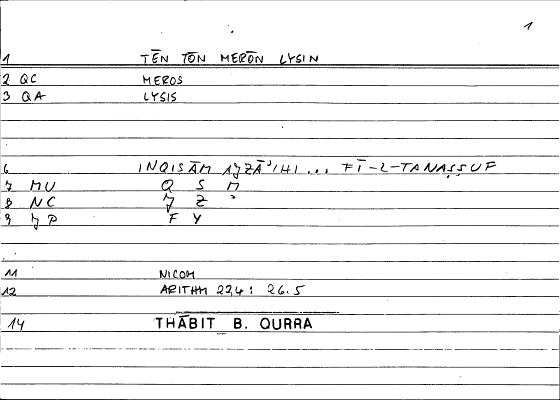 1
1 TĒN TŌN MERŌN LYSIN
2 QC MEROS
3 QA LYSIS
6 INQISĀM AǦZĀʾIHI ... FĪ-L-TANAṢṢUF
7 MU Q S M
8 NC Ǧ Z ʾ
9 ǦP F Y
11 NICOM
12 ARITHM 22,4 : 26.5
14 THĀBIT B. QURRA